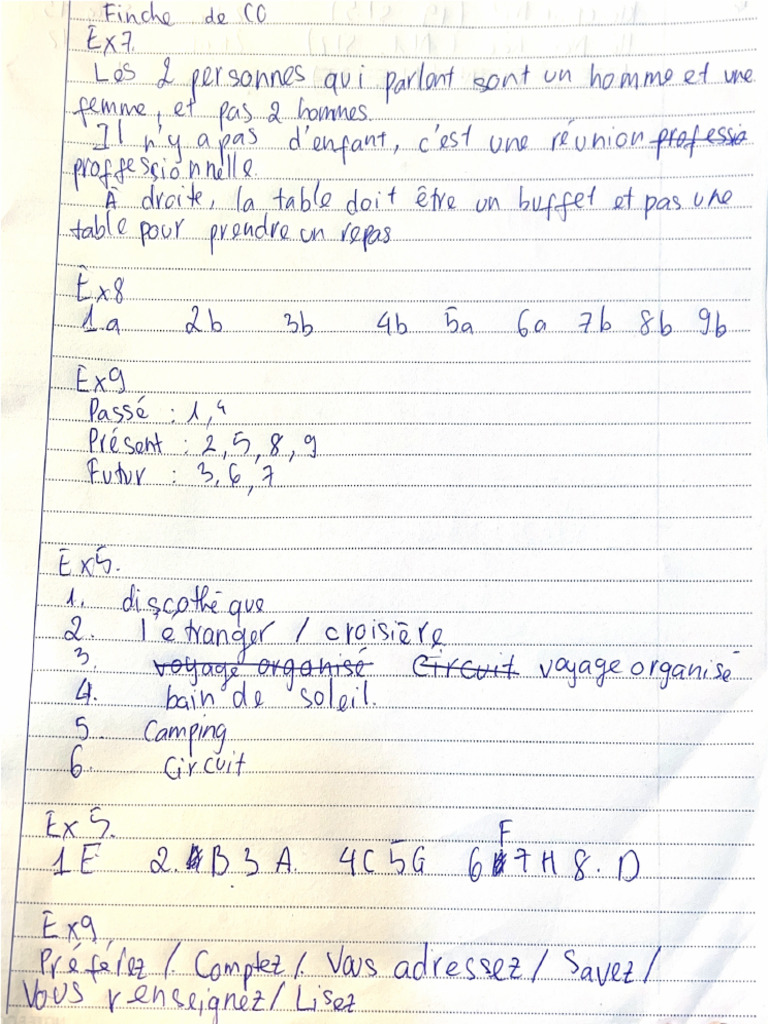 Finche de CO
Ex7.
Les 2 personnes qui parlent sont un homme et une
femme, et pas 2 hommes.
Il n'y a pas d'enfant, c'est une réunion professio
proffessionnelle.
À droite, la table doit être un buffet et pas une
table pour prendre un repas
Ex8
1a 2b 3b 4b 5a 6a 7b 8b 9b
Ex9
Passé : 1, 4
Présent : 2, 5, 8, 9
Futur : 3, 6, 7
Ex5.
1. discothèque
2. l'étranger / croisière
3. voyage organisé Circuit voyage organisé
4. bain de soleil.
5. Camping
6. Circuit
Ex 5.
1E 2. B 3 A. 4C 5G 6 F 7H 8. D
Ex9
Préférez / Comptez / Vous adressez / Savez /
Vous renseignez / Lisez